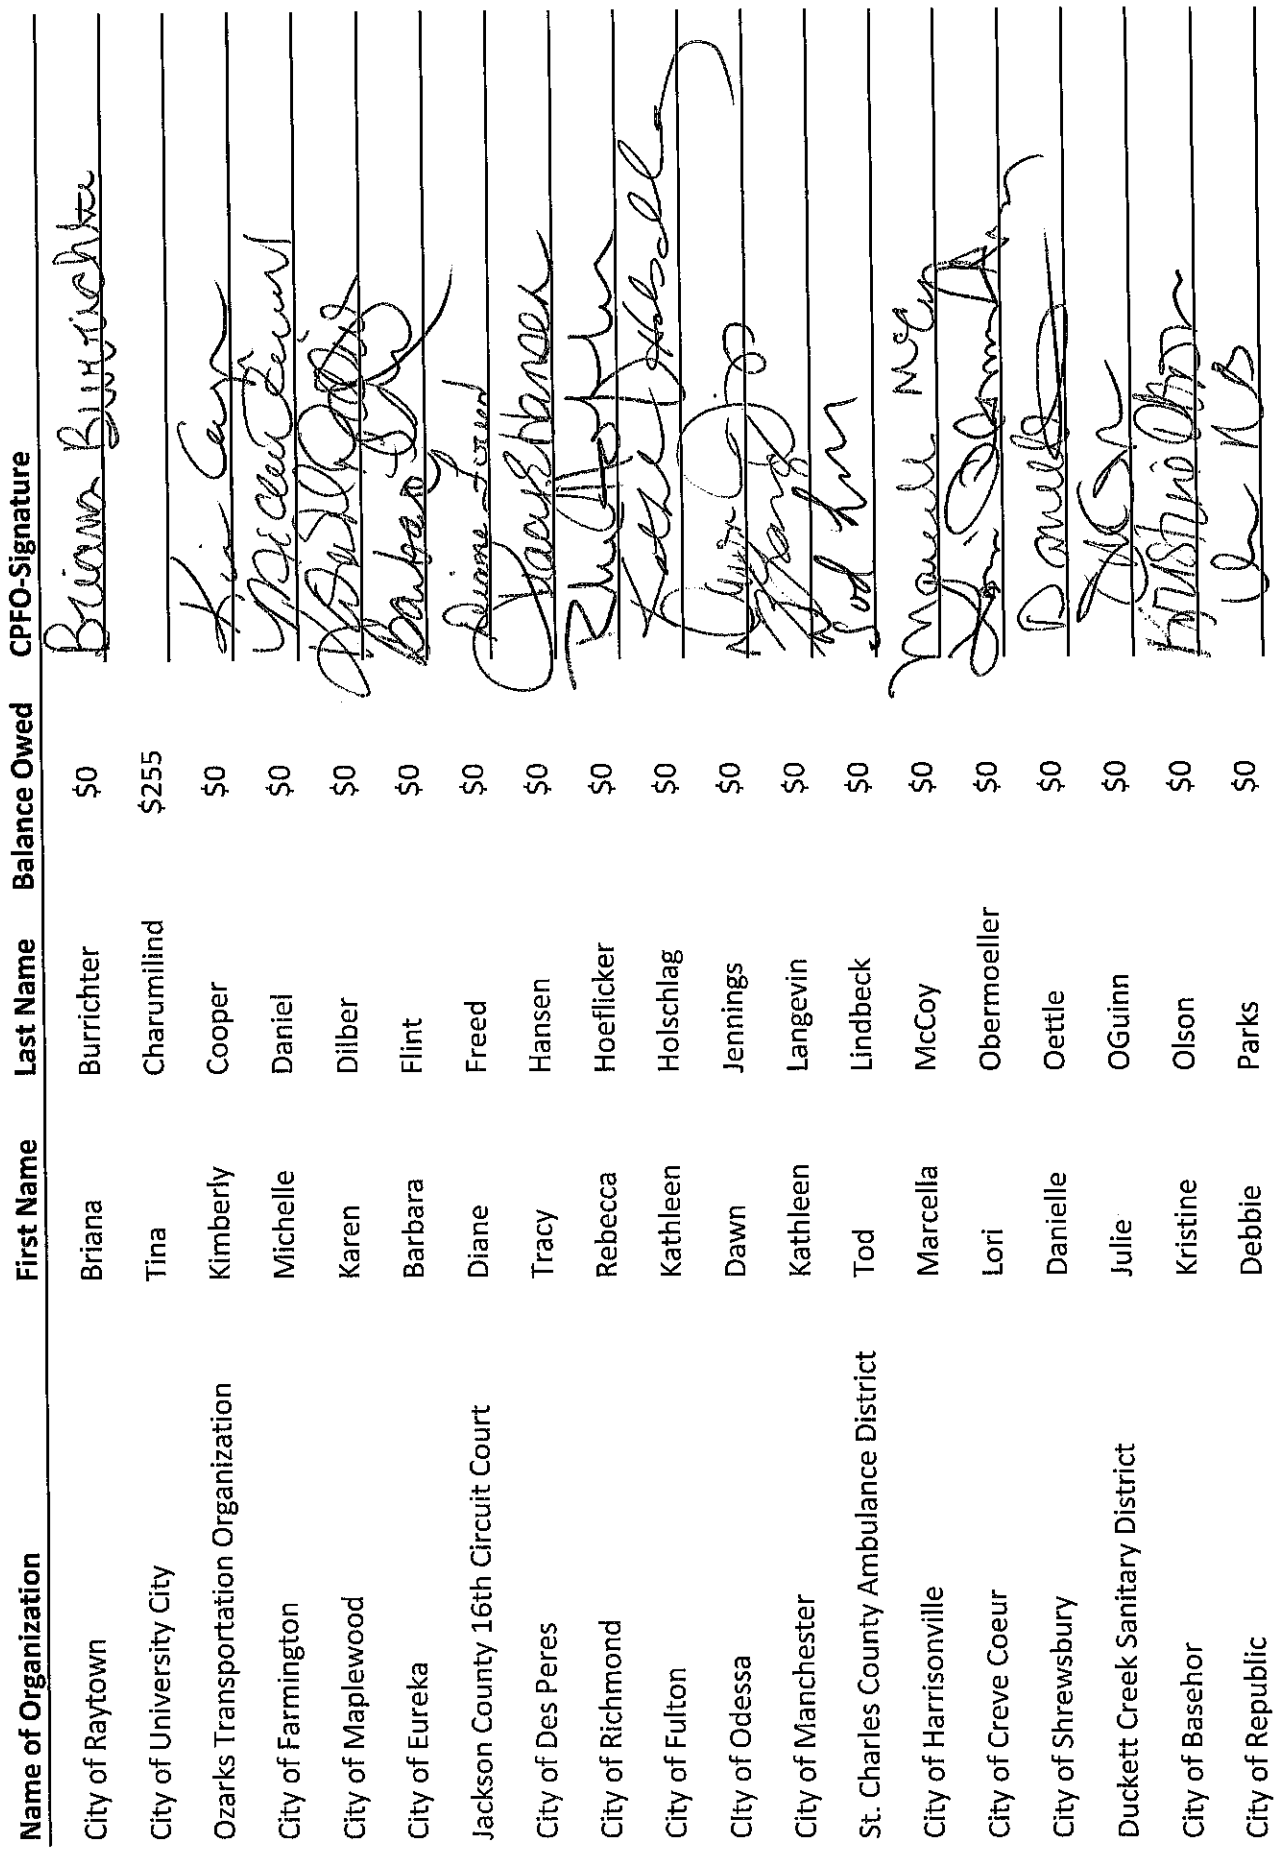 Name of Organization First Name Last Name Balance Owed CPFO-Signature
City of Raytown Briana Burrichter $0 Briana Burrichter
City of University City Tina Charumilind $255
Ozarks Transportation Organization Kimberly Cooper $0
City of Farmington Michelle Daniel $0
City of Maplewood Karen Dilber $0
City of Eureka Barbara Flint $0 Barbara
Jackson County 16th Circuit Court Diane Freed $0 Diane Freed
City of Des Peres Tracy Hansen $0 Tracy Hansen
City of Richmond Rebecca Hoeflicker $0
City of Fulton Kathleen Holschlag $0
CIty of Odessa Dawn Jennings $0
City of Manchester Kathleen Langevin $0
St. Charles County Ambulance District Tod Lindbeck $0 Tod
City of Harrisonville Marcella McCoy $0
City of Creve Coeur Lori Obermoeller $0
City of Shrewsbury Danielle Oettle $0
Duckett Creek Sanitary District Julie OGuinn $0
City of Basehor Kristine Olson $0 Kristine Olson
City of Republic Debbie Parks $0